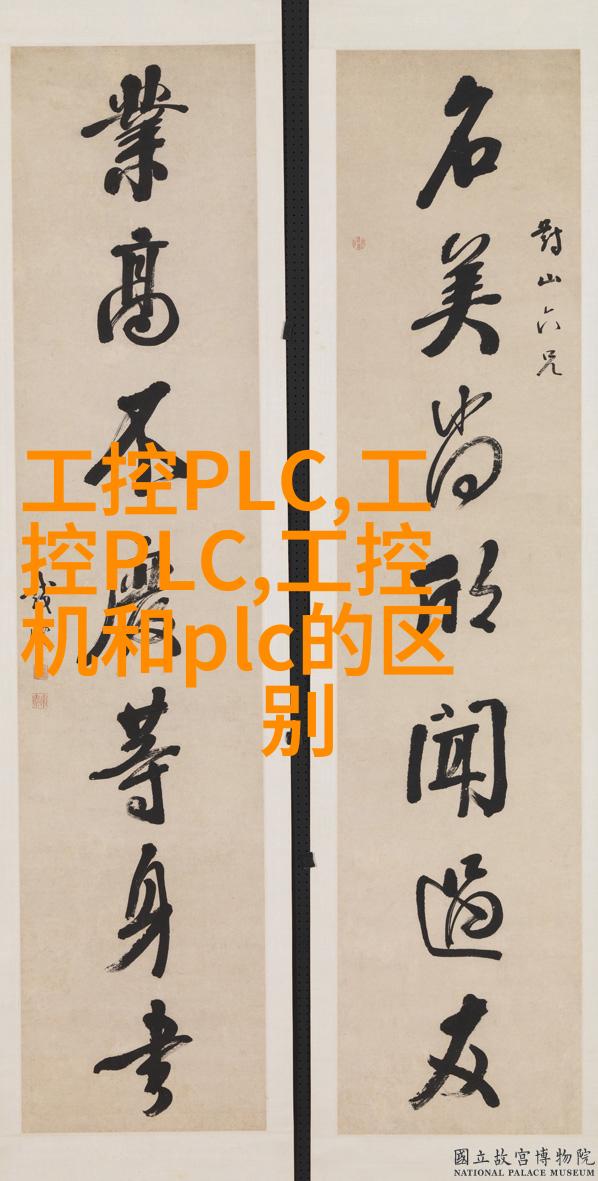 對山六兄
名美尚欣聞過友
業高不廢等身書
工控PLC,工
控PLC,工控
机和plc的区
别
國立故宮博物院
NATIONAL PALACE MUSEUM